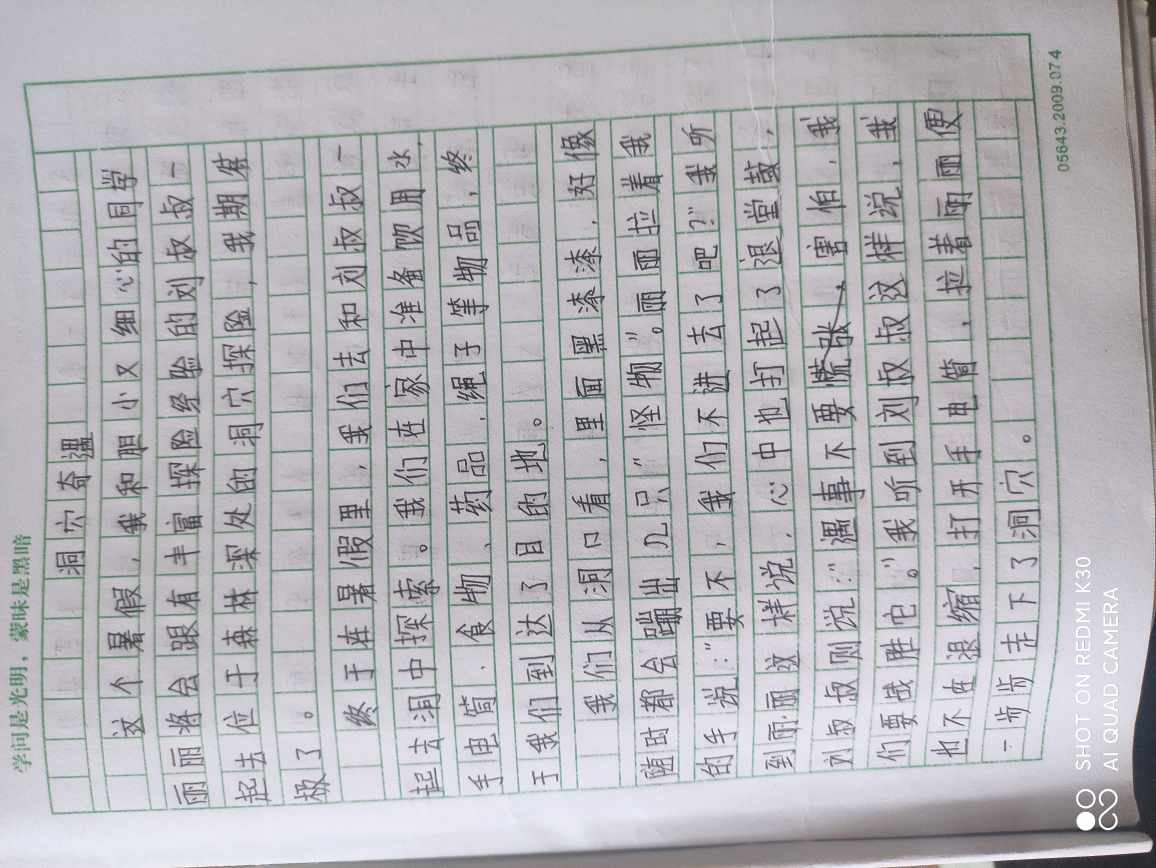 学问是光明，蒙昧是黑暗
洞穴奇遇
这个暑假，我和胆小又细心的同学
丽丽将会跟有丰富探险经验的刘叔叔一
起去位于森林深处的洞穴探险，我期待
极了。
终于在暑假里，我们去和刘叔叔一
起去洞中探索。我们在家中准备饮用水，
手电筒、食物、药品、绳子等物品，终
于我们到达了目的地。
我们从洞口看，里面黑漆漆，好像
随时都会蹦出几只“怪物”。丽丽拉着我
的手说：“要不，我们不进去了吧？”我听
到丽丽这样说，心中也打起了退堂鼓，
刘叔叔则说：“遇事不要慌张、害怕，我
们要战胜它。”我听到刘叔叔这样说，我
也不在退缩，打开手电筒，拉着丽丽便
一步步走下了洞穴。
05643.2009.07.4
SHOT ON REDMI K30
AI QUAD CAMERA